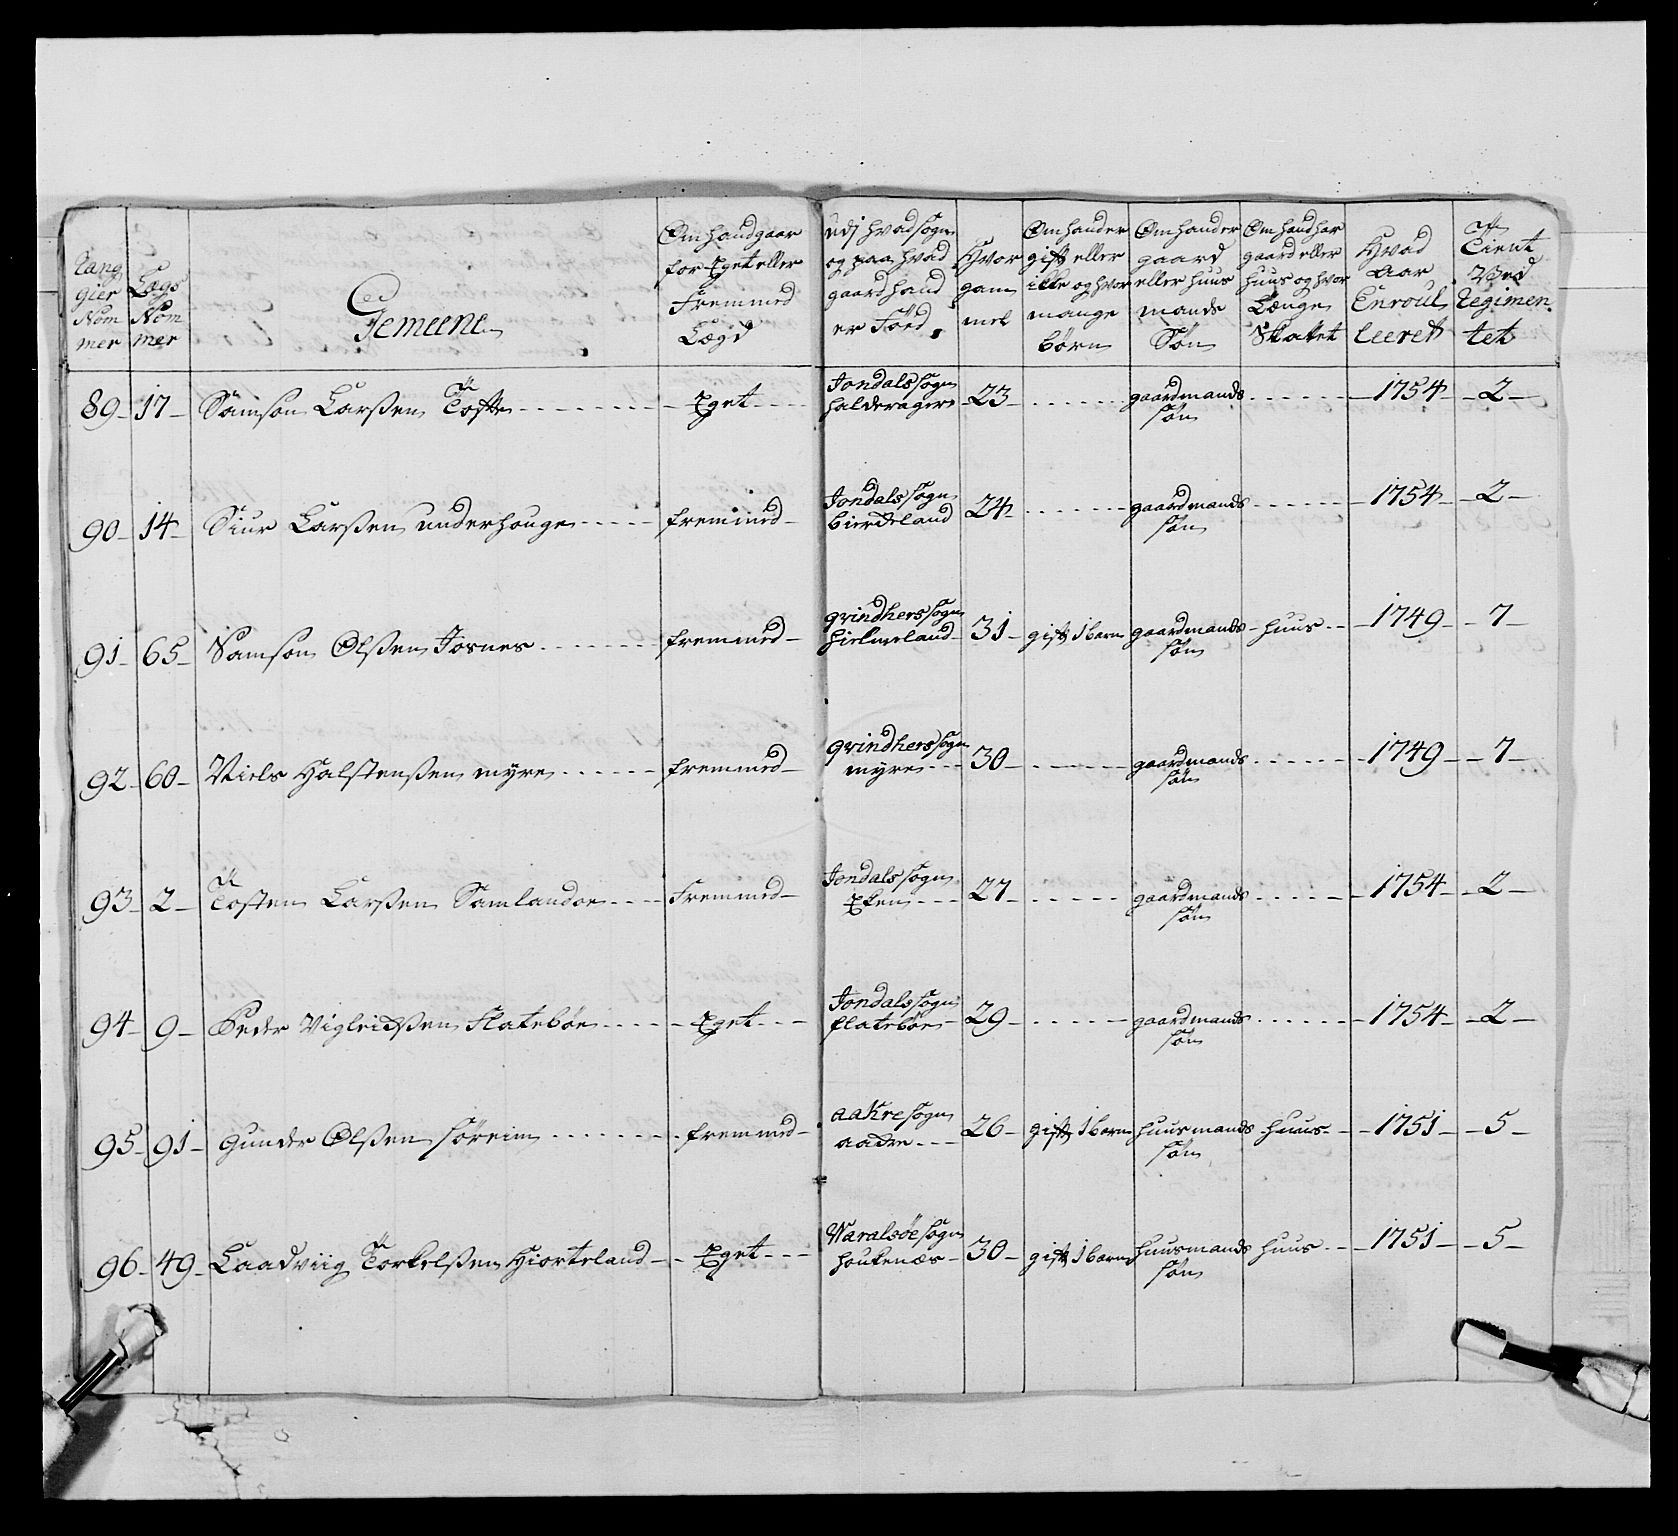 Rang
gier
Nom
mer
Lægs
Nom
mer
Gemeene
Om hand gaar
for Eget eller
Fremmed
Lægd
Udj hvad sogn
og paa hvad
gaard hand
er Föed
Hvor
gam
mel
Om hand er
gift eller
ikke og hvor
mange
börn
Om hand er
gaard
eller huus
mands
Sön
Om hand har
gaard eller
huus og hvor
Længe
Skattet
Hvad
Aar
Enroul
leeret
Tient
Ved
Regimen
tet
89 17 Samson Larßen Tofte Eget Jondals sogn halderager 23 gaardmands sön 1754 2
90 14 Siur Larßen underhouge fremmed Jondals sogn bierkeland 24 gaardmands sön 1754 2
91 65 Samson Olßen Fosnes fremmed qvindhers sogn hielmeland 31 gift 1 barn gaardmands sön huus 1749 7
92 60 Niels Halstenßen myre fremmed qvindhers sogn myre 30 gaardmands sön 1749 7
93 2 Tosten Larßen Samlandoe Fremmed Jondals sogn Eken 27 gaardmands sön 1754 2
94 9 Peder Vigleidßen Flatebön Eget Jondals sogn flatebön 29 gaardmands sön 1754 2
95 91 Gunder Olßen söreim fremmed aakre sogn aakre 26 gift 1 barn huusmands sön huus 1751 5
96 49 Laadviig Torkelßen Hiorteland Eget Varalsöe sogn houkenæs 30 gift 1 barn huusmands sön huus 1751 5